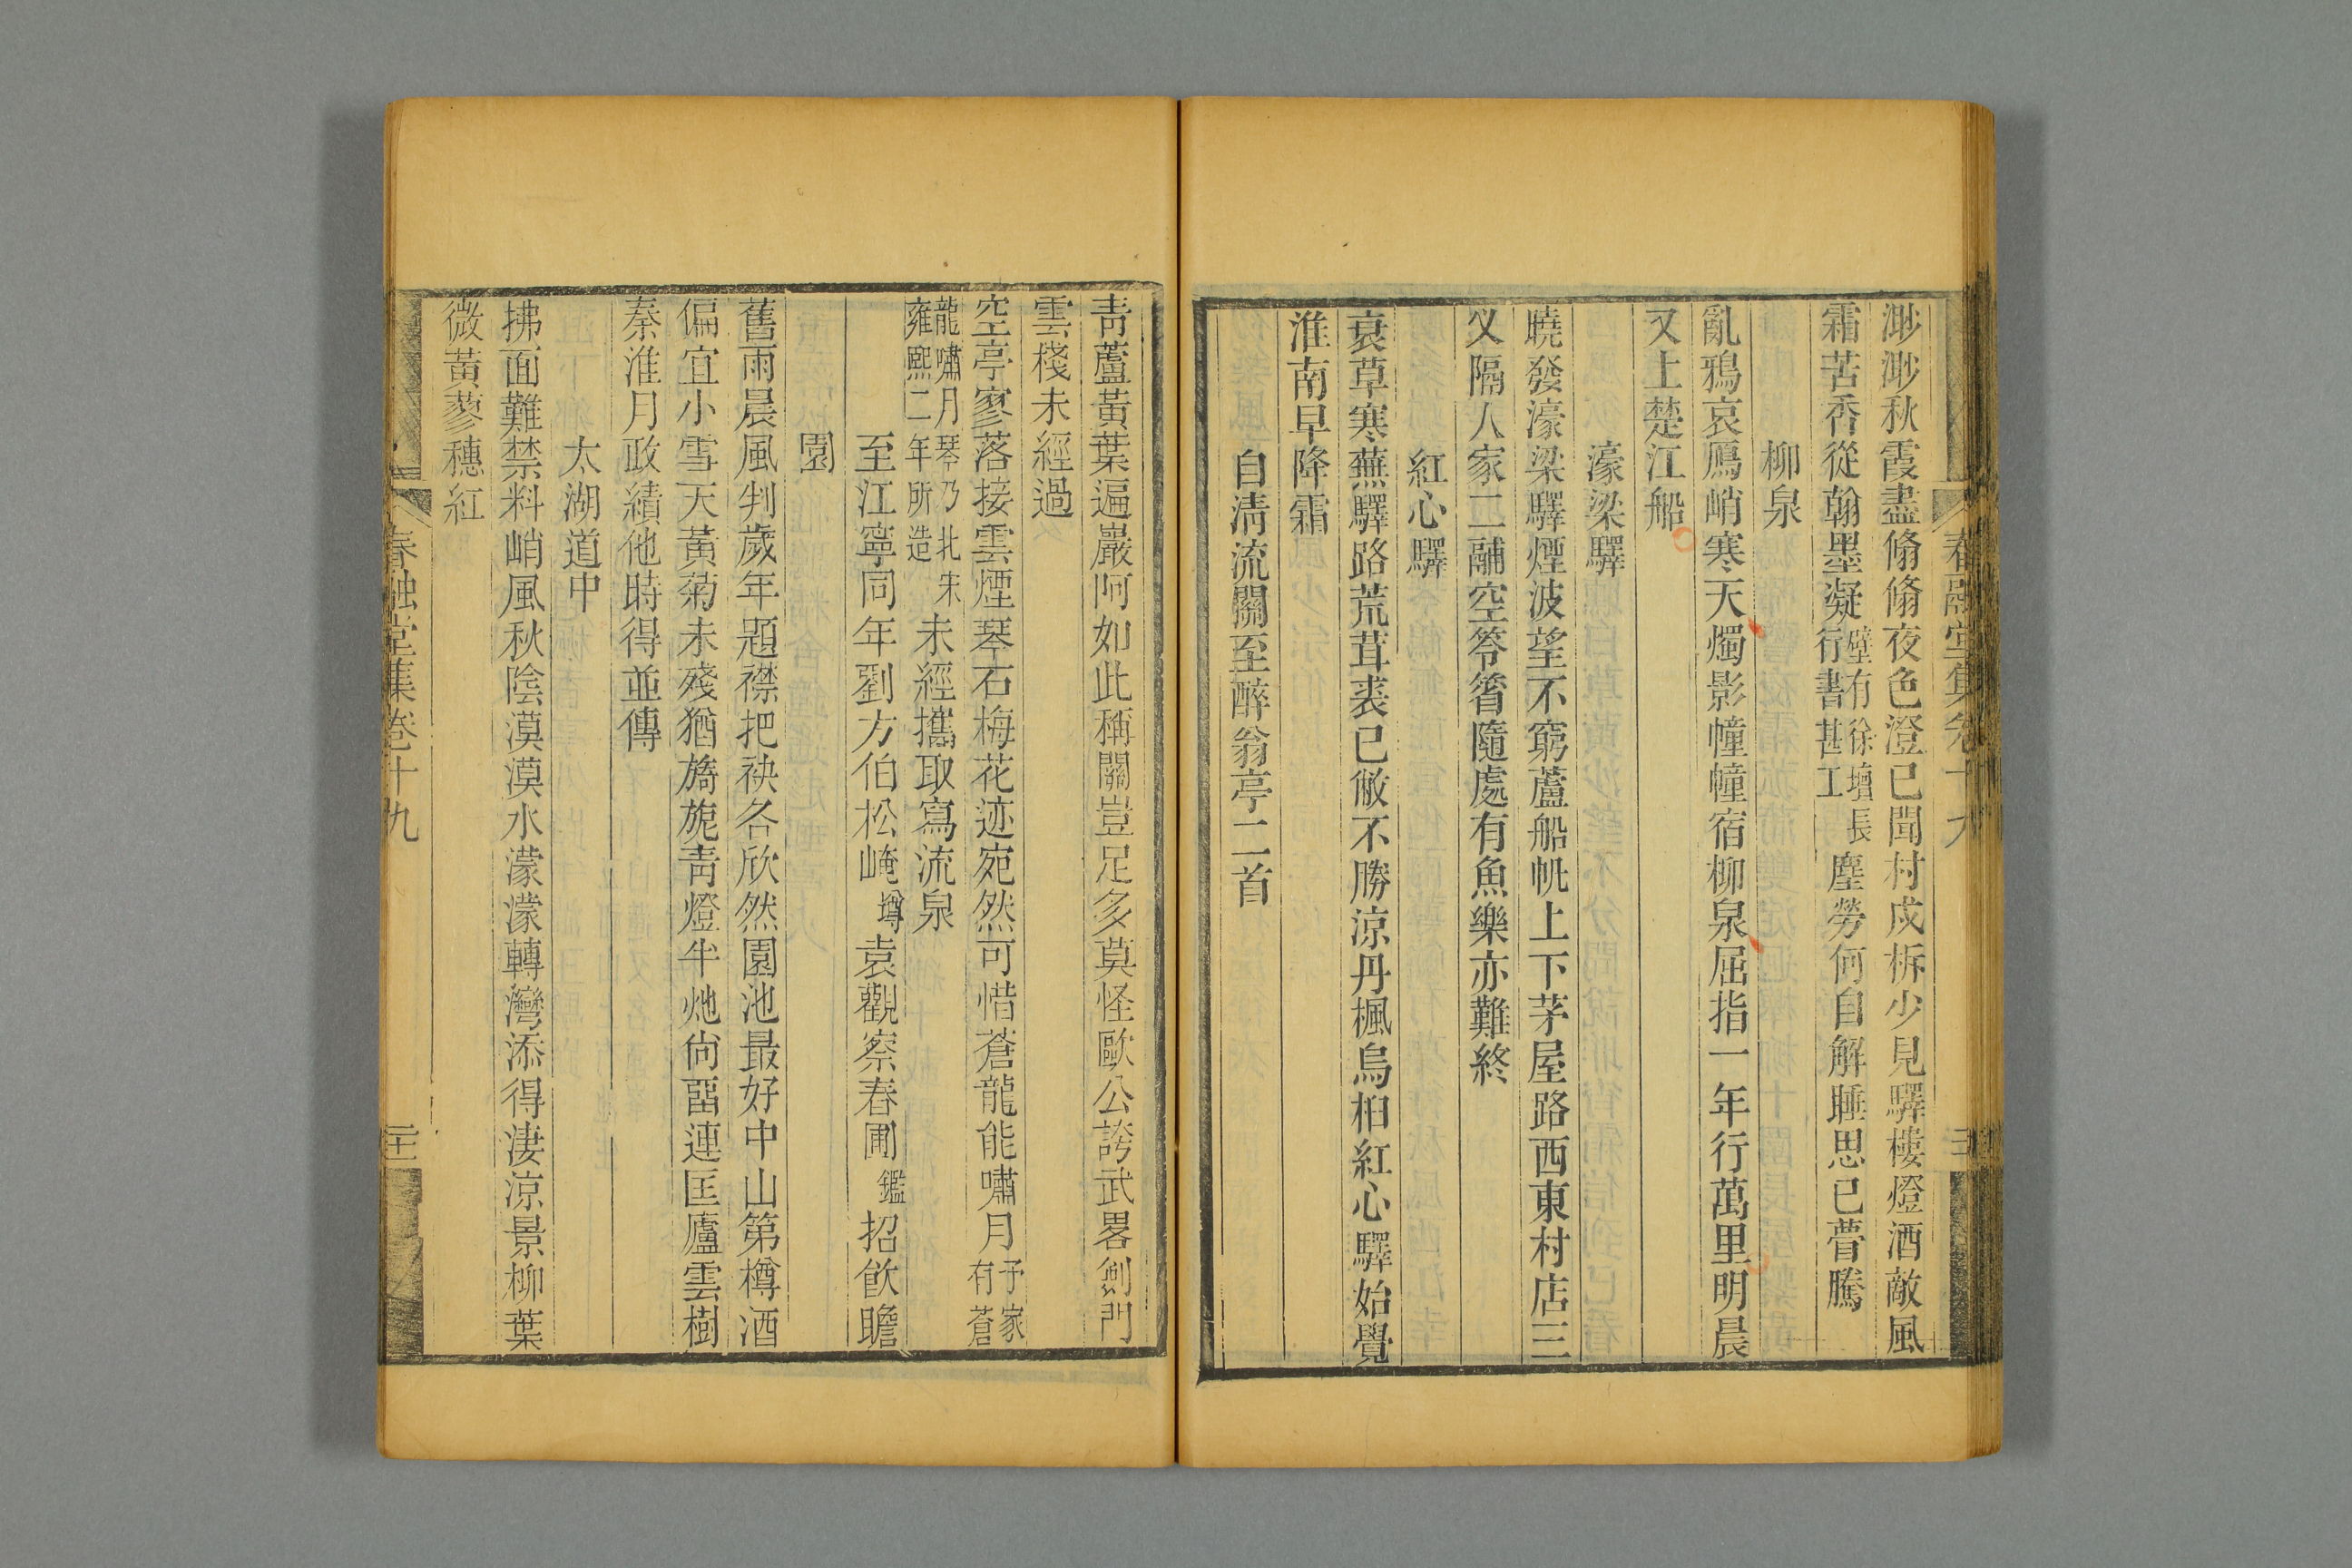 渺渺秋霞盡翛翛夜色澄已聞村戍柝少見驛樓燈酒敵風
霜苦香從翰墨凝壁有徐壇長行書甚工塵勞何自解睡思已瞢騰
柳泉
亂鴉哀鴈峭寒天燭影幢幢宿柳泉屈指一年行萬里明晨
又上楚江船
濠梁驛
曉發濠梁驛煙波望不窮蘆船帆上下茅屋路西東村店三
义隔人家二酺空笭箵隨處有魚樂亦難終
紅心驛
衰草寒蕪驛路荒茸裘已敝不勝涼丹楓烏桕紅心驛始覺
淮南早降霜
自清流關至醉翁亭二首
青蘆黃葉遍巖阿如此稱關豈足多莫怪歐公誇武畧劍門
雲棧未經過
空亭寥落接雲煙琴石梅花迹宛然可惜蒼龍能嘯月予家有蒼
龍嘯月琴乃北宋雍熙二年所造未經攜取寫流泉
至江寧同年劉方伯松崦墫袁觀察春圃鑑招飮瞻
園
舊雨晨風判歲年題襟把袂各欣然園池最好中山第樽酒
偏宜小雪天黃菊未殘猶旖旎青燈半灺尙畱連匡廬雲樹
秦淮月政績他時得並傳
太湖道中
拂面難禁料峭風秋陰漠漠水濛濛轉灣添得淒涼景柳葉
微黃蓼穗紅
春融堂集卷十九